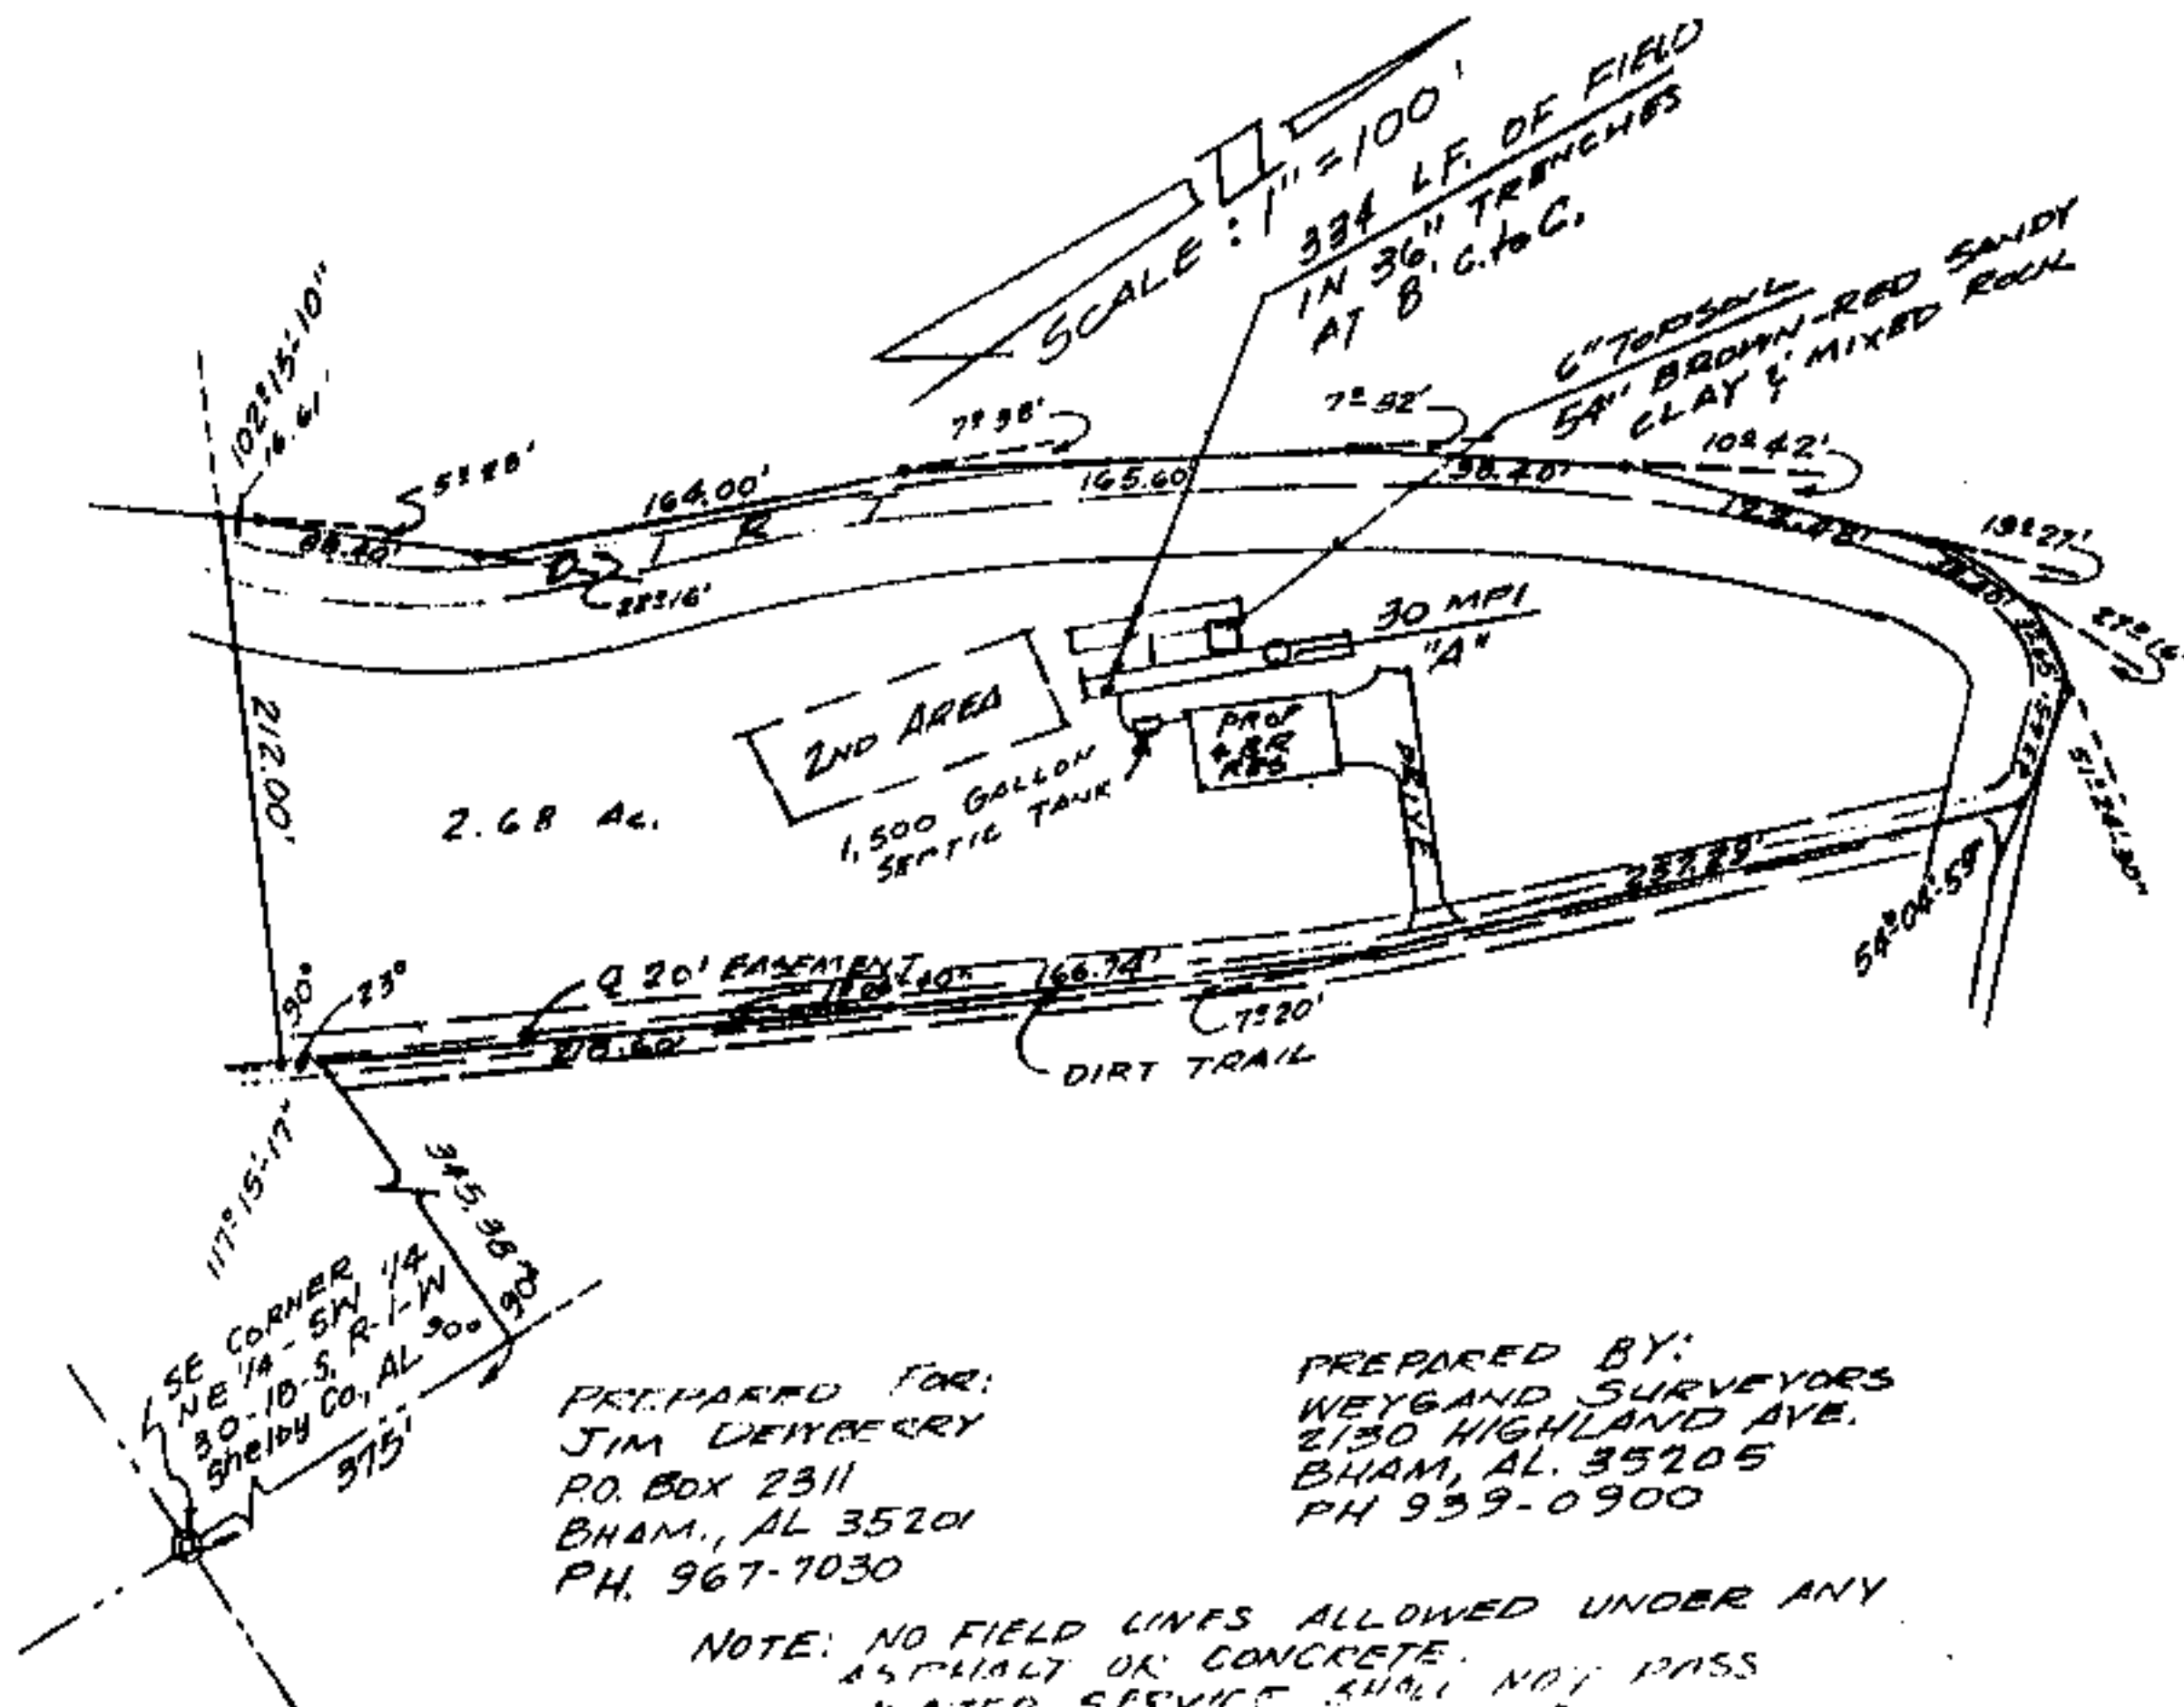 SCALE : 1" = 100'
334 L.F. OF FIELD
IN 36" TRENCHES
AT 8' C. to C.
6" TOPSOIL
54" BROWN-RED SANDY
CLAY & MIXED ROCK
102°15'-10"
16.61'
164.00'
7°38'
165.60'
7°32'
98.40'
10°42'
13°27'
28°16'
212.00'
2.68 Ac.
2ND AREA
30 MPI
"A"
PROP
1,500 GALLON
SEPTIC TANK
DRIVE
237.29'
54°04'-59"
90°
23°
20' EASEMENT
166.74'
7°20'
DIRT TRAIL
117°15'-17"
945.38'
90°
SE CORNER
NE 1/4 - SW 1/4
30-18-S, R-1-W
Shelby Co, AL
90°
375'
PREPARED FOR:
JIM DEWBERRY
P.O. BOX 2311
BHAM., AL 35201
PH. 967-7030
PREPARED BY:
WEYGAND SURVEYORS
2130 HIGHLAND AVE.
BHAM, AL. 35205
PH 939-0900
NOTE: NO FIELD LINES ALLOWED UNDER ANY
ASPHALT OR CONCRETE.
WATER SERVICE SHALL NOT PASS